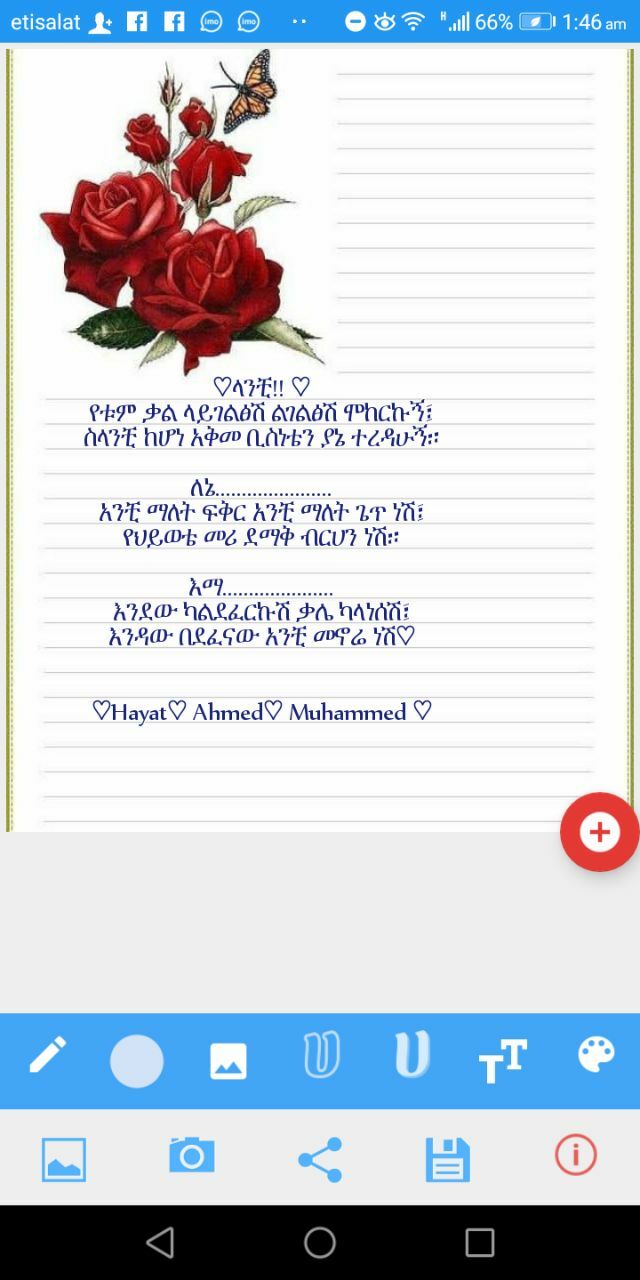 etisalat 66% 1:46 am
♡ላንቺ!! ♡
የቱም ቃል ላይገልፅሽ ልገልፅሽ ሞከርኩኝ፤
ስላንቺ ከሆነ አቅመ ቢስነቴን ያኔ ተረዳሁኝ።
ለኔ......................
አንቺ ማለት ፍቅር አንቺ ማለት ጌጥ ነሽ፤
የህይወቴ መሪ ደማቅ ብርሀን ነሽ።
እማ.....................
እንደው ካልደፈርኩሽ ቃሌ ካላነሰሽ፤
እንዳው በደፈናው አንቺ መኖሬ ነሽ♡
♡Hayat♡ Ahmed♡ Muhammed ♡